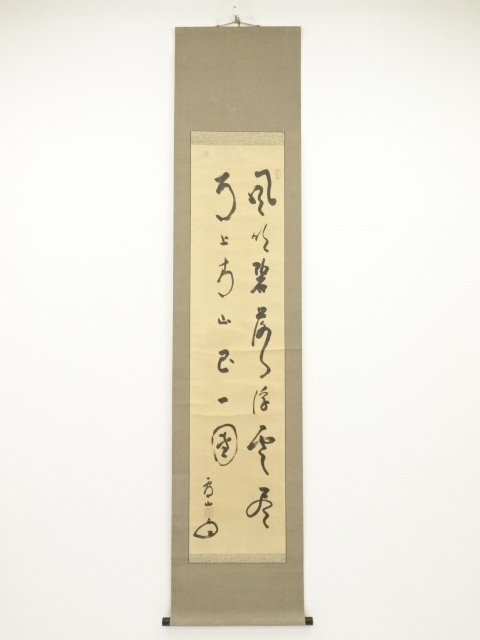 風吹碧落浮雲尽
月上青山玉一團